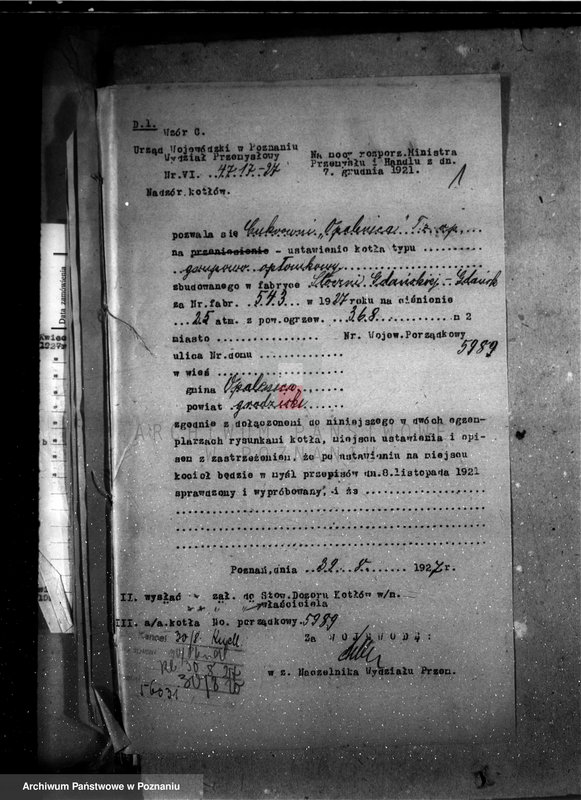 D.1.
Wzór C.
Urząd Wojewódzki w Poznaniu
Wydział Przemysłowy
Nr.VI. 47.17.-27
Nadzór kotłów.
Na mocy rozporz.Ministra
Przemysłu i Handlu z dn.
7. grudnia 1921.
1
pozwala się Cukrowni „Opalenica" Tz. ap.
na przeniesienie - ustawienie kotła typu
opłomkowy
zbudowanego w fabryce Stoczni Gdańskiej - Gdańsk
za Nr.fabr. 543 w 1927 roku na ciśnienie
25 atm. z pow.ogrzew. 368 m 2
miasto Nr. Wojew.Porządkowy
ulica Nr.domu 5989
w wsi
gmina Opalenica
powiat grodziski
zgodnie z dołączonemi do niniejszego w dwóch egzem-
plarzach rysunkami kotła, miejsca ustawienia i opi-
sem z zastrzeżeniem, że po ustawieniu na miejscu
kocioł będzie w myśl przepisów dn.8.listopada 1921
sprawdzony i wypróbowany, i że
Poznań,dnia 192 7 r.
II. wysłać zał. do Stow.Dozoru Kotłów w/m.
" " " właściciela
III. a/a.kotła No. porządkowy. 5989
Za WOJEWODĘ:
w z. Naczelnika Wydziału Przem.
30/8.
56031
Data zamówienia
Archiwum Państwowe w Poznaniu